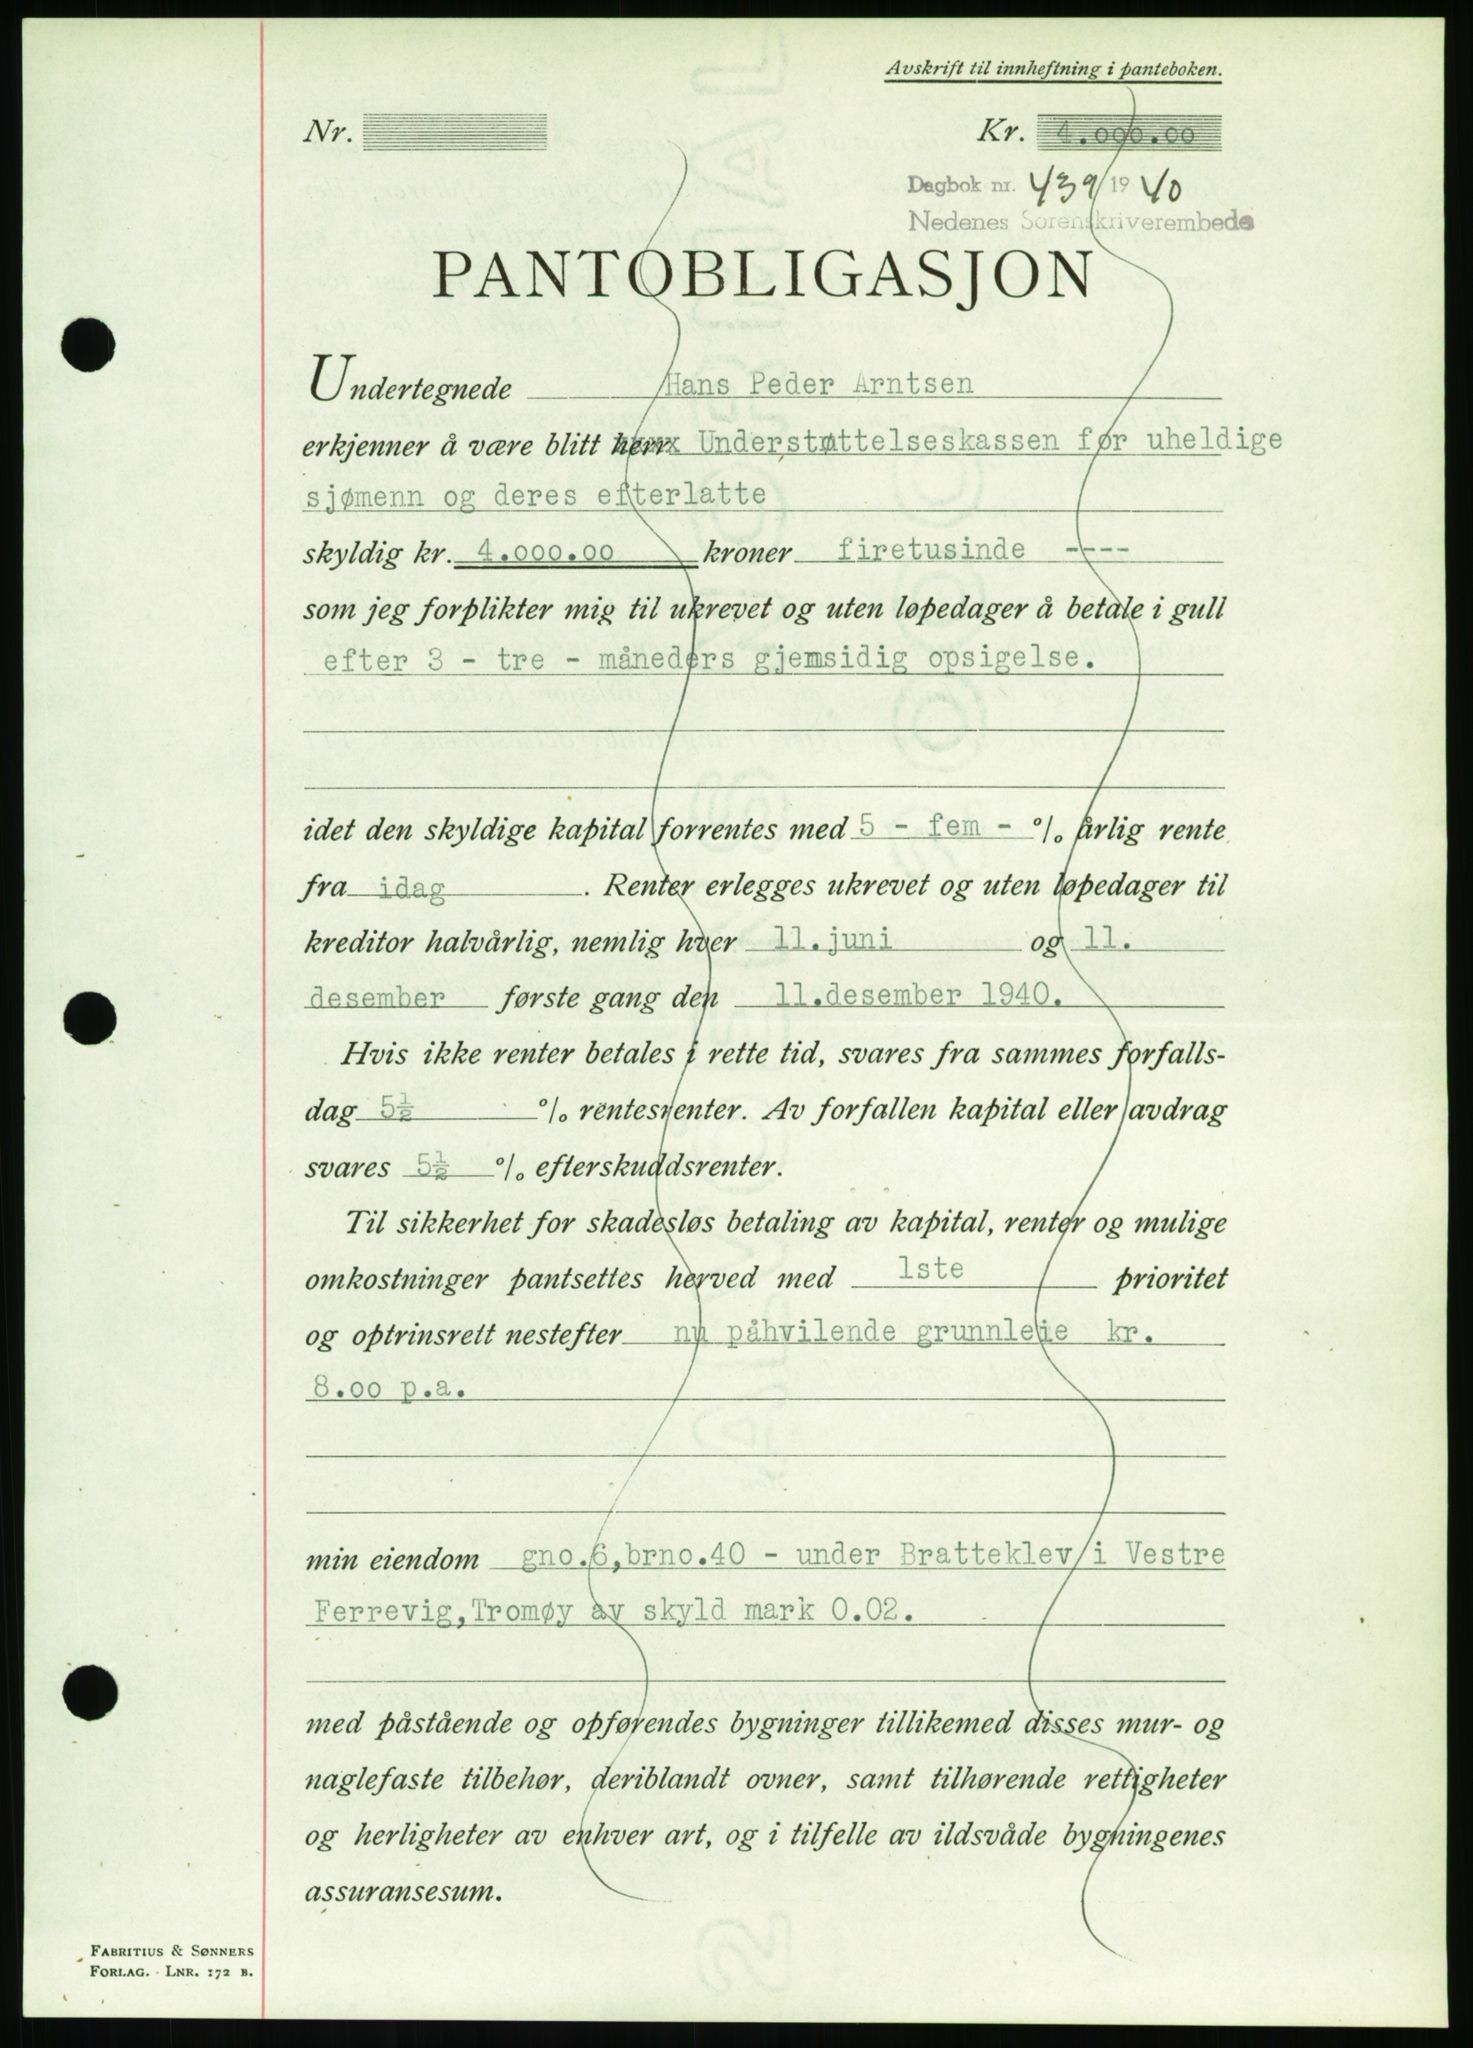 Avskrift til innheftning i panteboken.
Nr.
Kr. 4.000.00
Dagbok nr. 439/1940
Nedenes Sorenskriverembede
PANTOBLIGASJON
Undertegnede Hans Peder Arntsen
erkjenner å være blitt herr Understøttelseskassen for uheldige
sjømenn og deres efterlatte
skyldig kr. 4.000.00 kroner firetusinde ----
som jeg forplikter mig til ukrevet og uten løpedager å betale i gull
efter 3 - tre - måneders gjemsidig opsigelse.
idet den skyldige kapital forrentes med 5 - fem - % årlig rente
fra idag . Renter erlegges ukrevet og uten løpedager til
kreditor halvårlig, nemlig hver 11.juni og 11.
desember første gang den 11.desember 1940.
Hvis ikke renter betales i rette tid, svares fra sammes forfalls-
dag 5½ % rentesrenter. Av forfallen kapital eller avdrag
svares 5½ % efterskuddsrenter.
Til sikkerhet for skadesløs betaling av kapital, renter og mulige
omkostninger pantsettes herved med 1ste prioritet
og optrinsrett nestefter nu påhvilende grunnleie kr.
8.00 p.a.
min eiendom gno.6,brno.40 - under Bratteklev i Vestre
Ferrevig,Tromøy av skyld mark 0.02.
med påstående og opførendes bygninger tillikemed disses mur- og
naglefaste tilbehør, deriblandt ovner, samt tilhørende rettigheter
og herligheter av enhver art, og i tilfelle av ildsvåde bygningenes
assuransesum.
FABRITIUS & SØNNERS
FORLAG. LNR. 172 B.